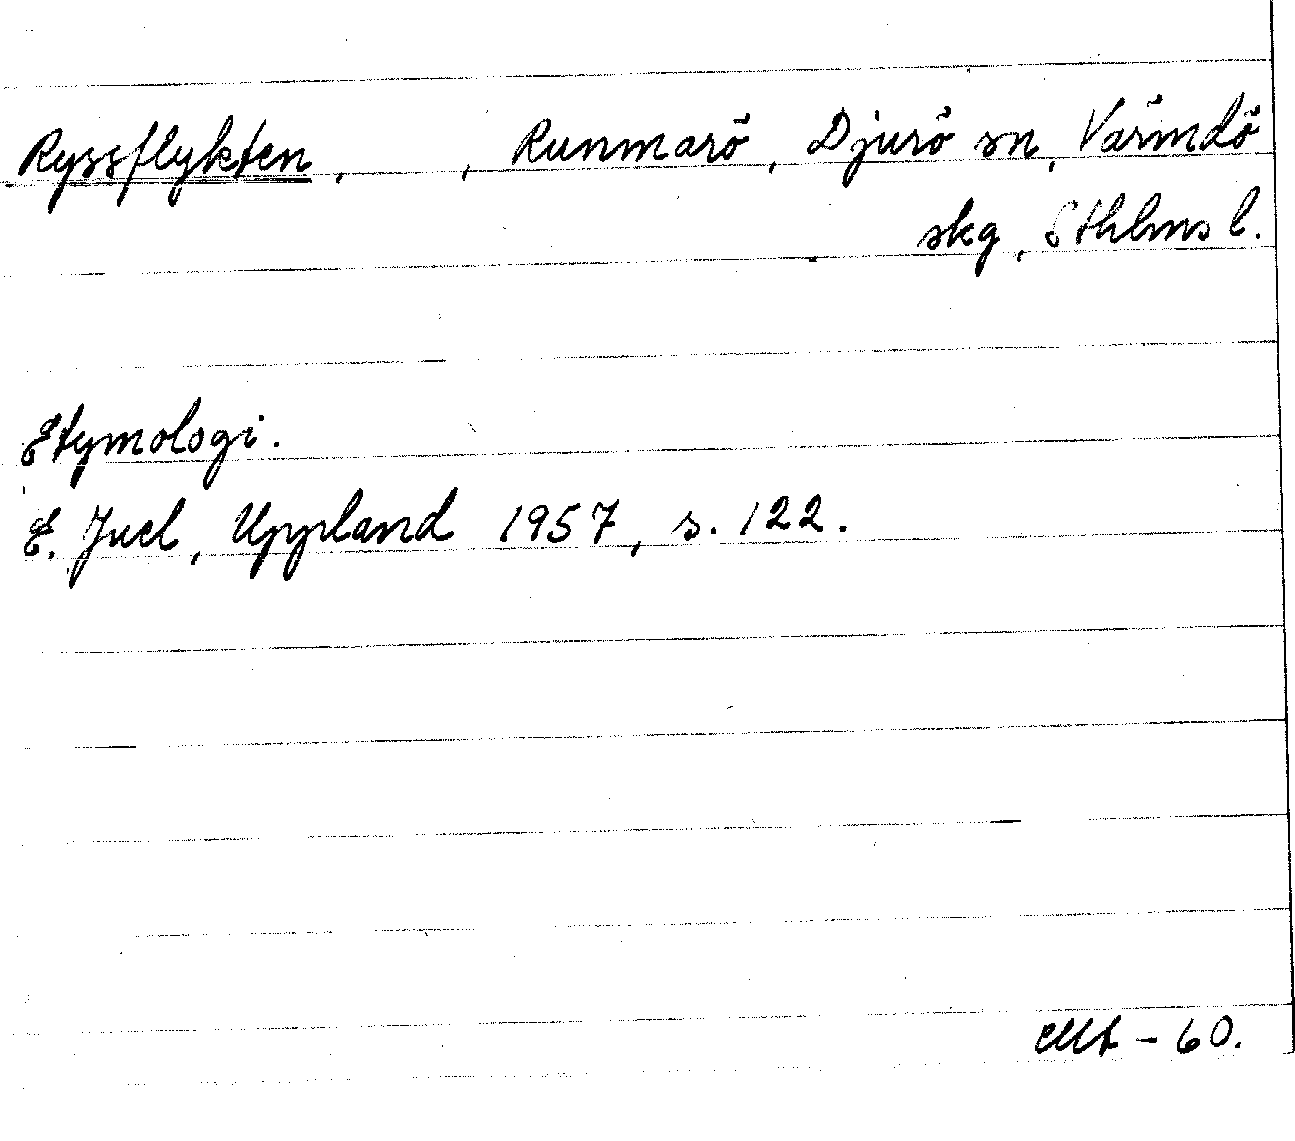 Ryssflykten, , Runmarö, Djurö sn, Värmdö
skg, Sthlms l.
Etymologi.
E. Juel, Uppland 1957, s. 122.
-60.